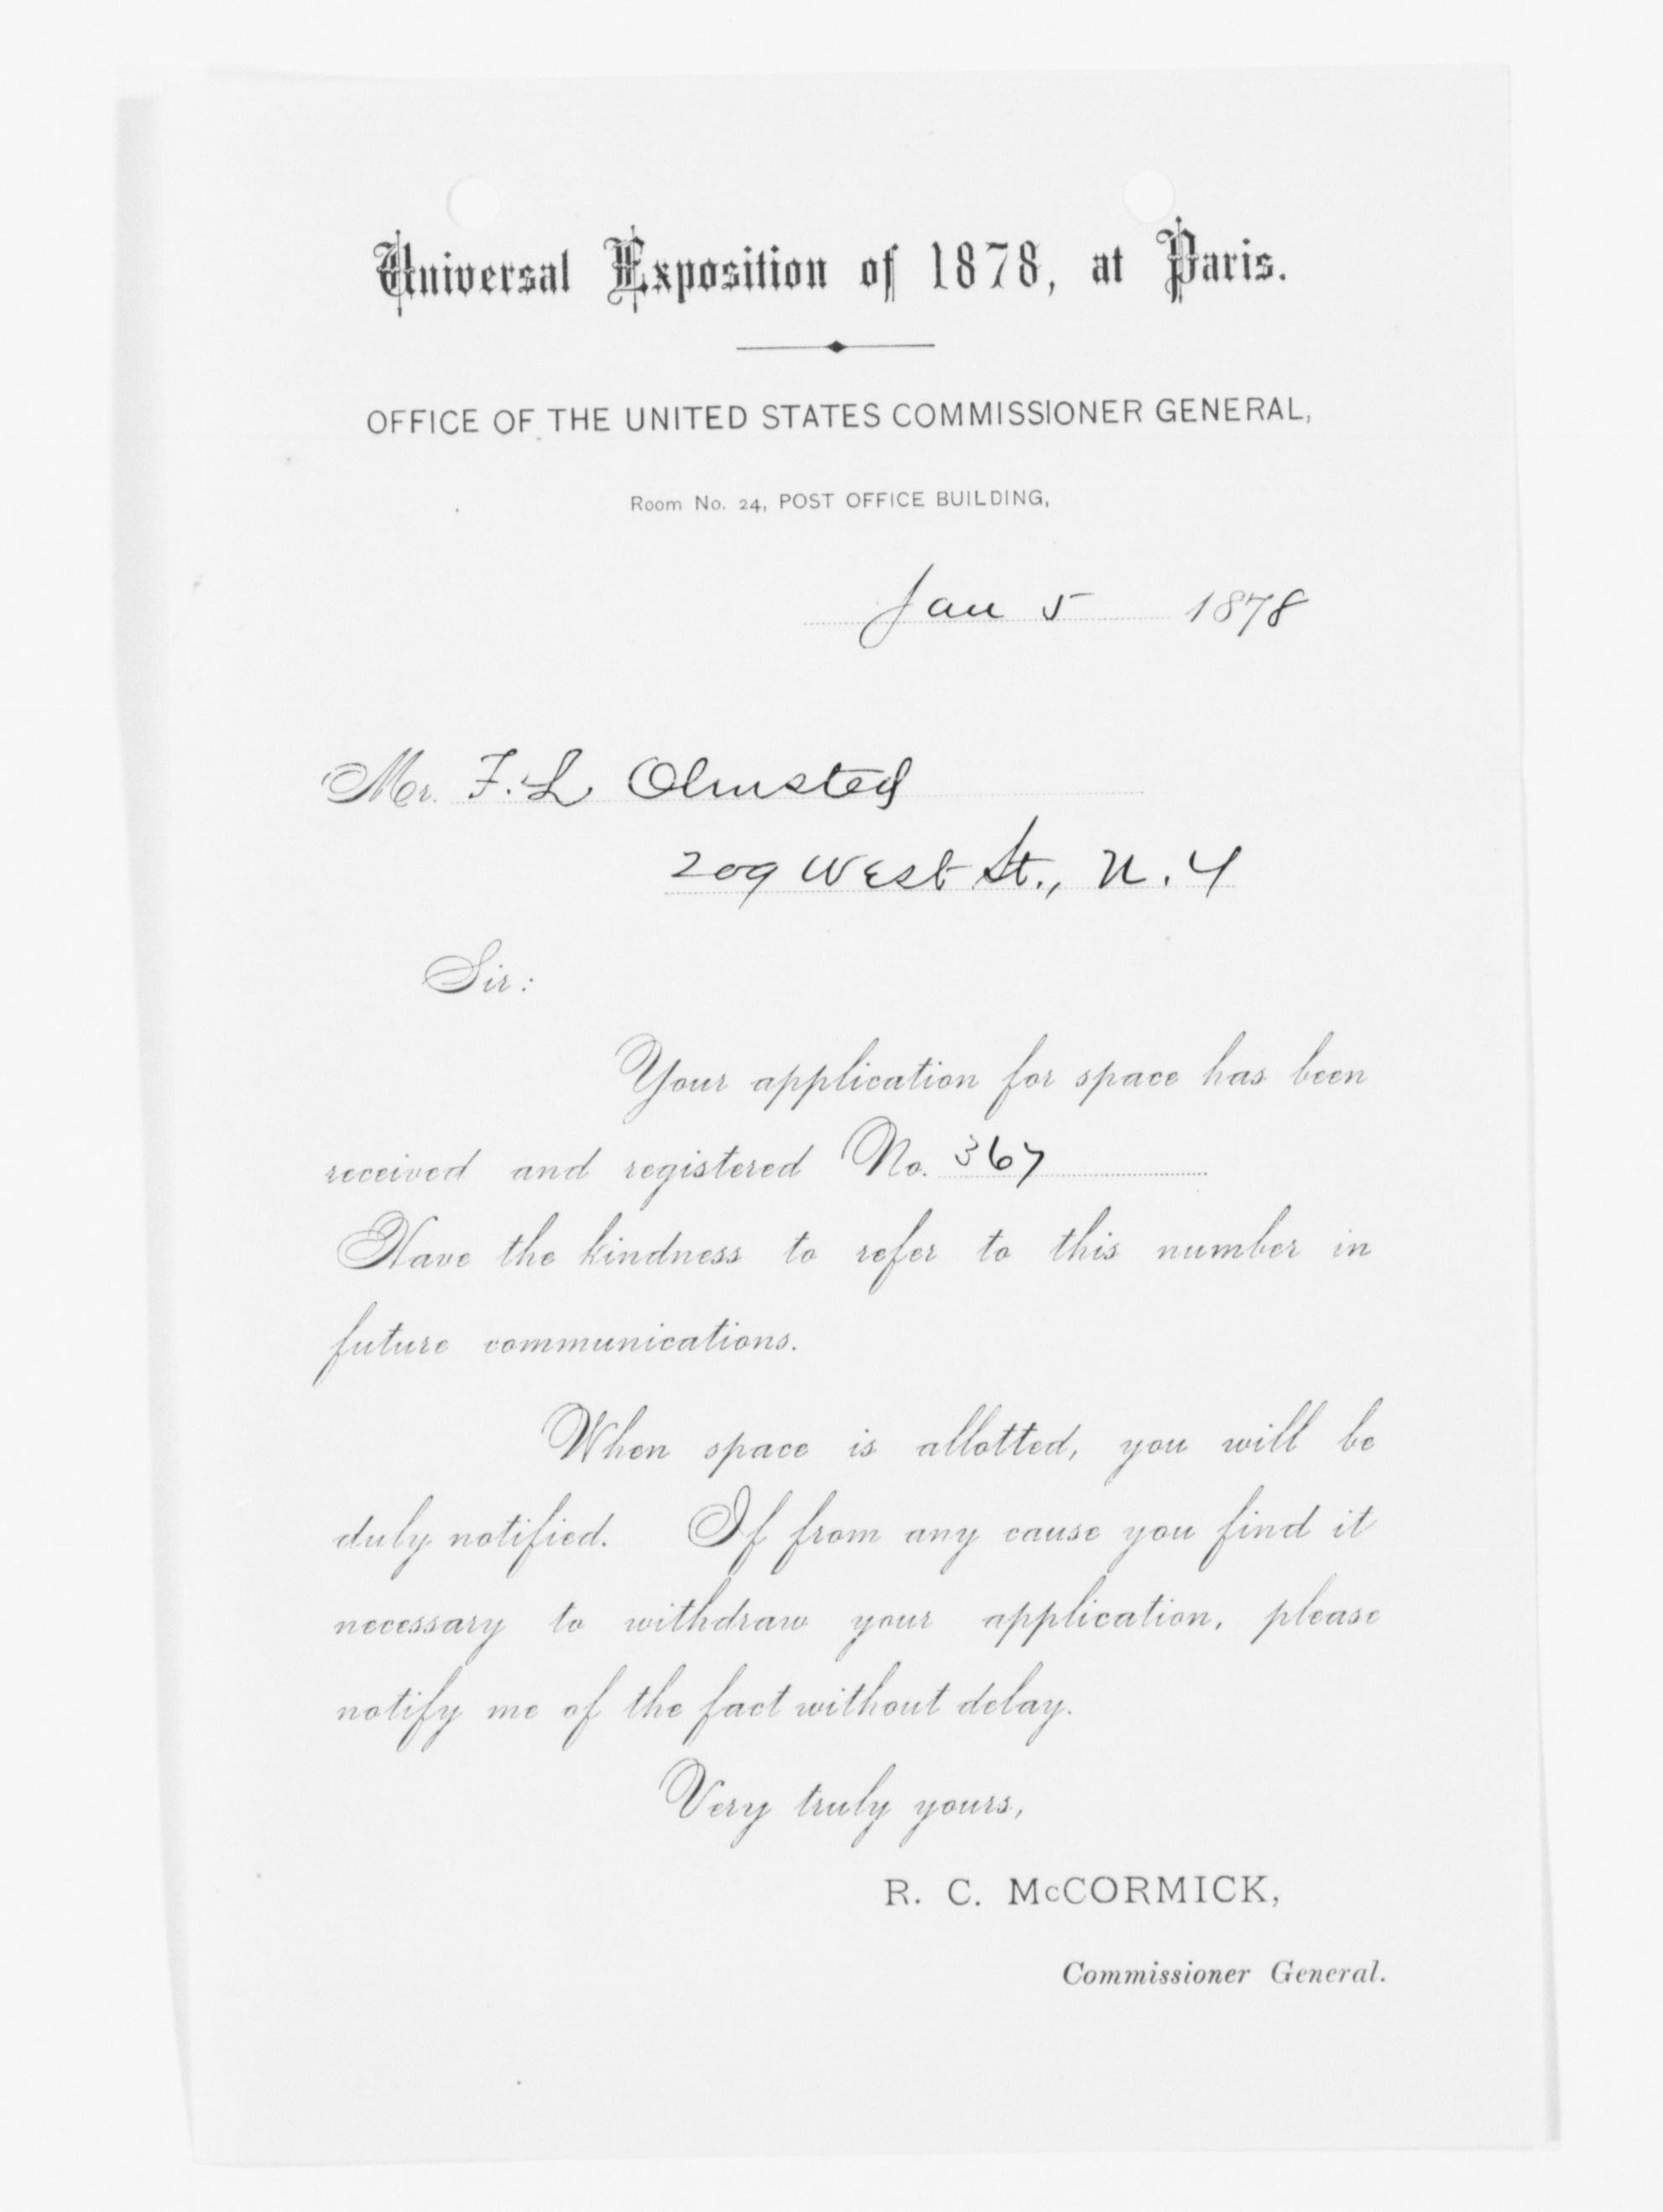 Universal Exposition of 1878, at Paris.
OFFICE OF THE UNITED STATES COMMISSIONER GENERAL,
Room No. 24, POST OFFICE BUILDING,
Jan 5 1878
Mr. F. L Olmsted
209 West St., N. Y
Sir:
Your application for space has been
received and registered No. 367
Have the kindness to refer to this number in
future communications.
When space is allotted, you will be
duly notified. If from any cause you find it
necessary to withdraw your application, please
notify me of the fact without delay.
Very truly yours,
R. C. McCORMICK,
Commissioner General.